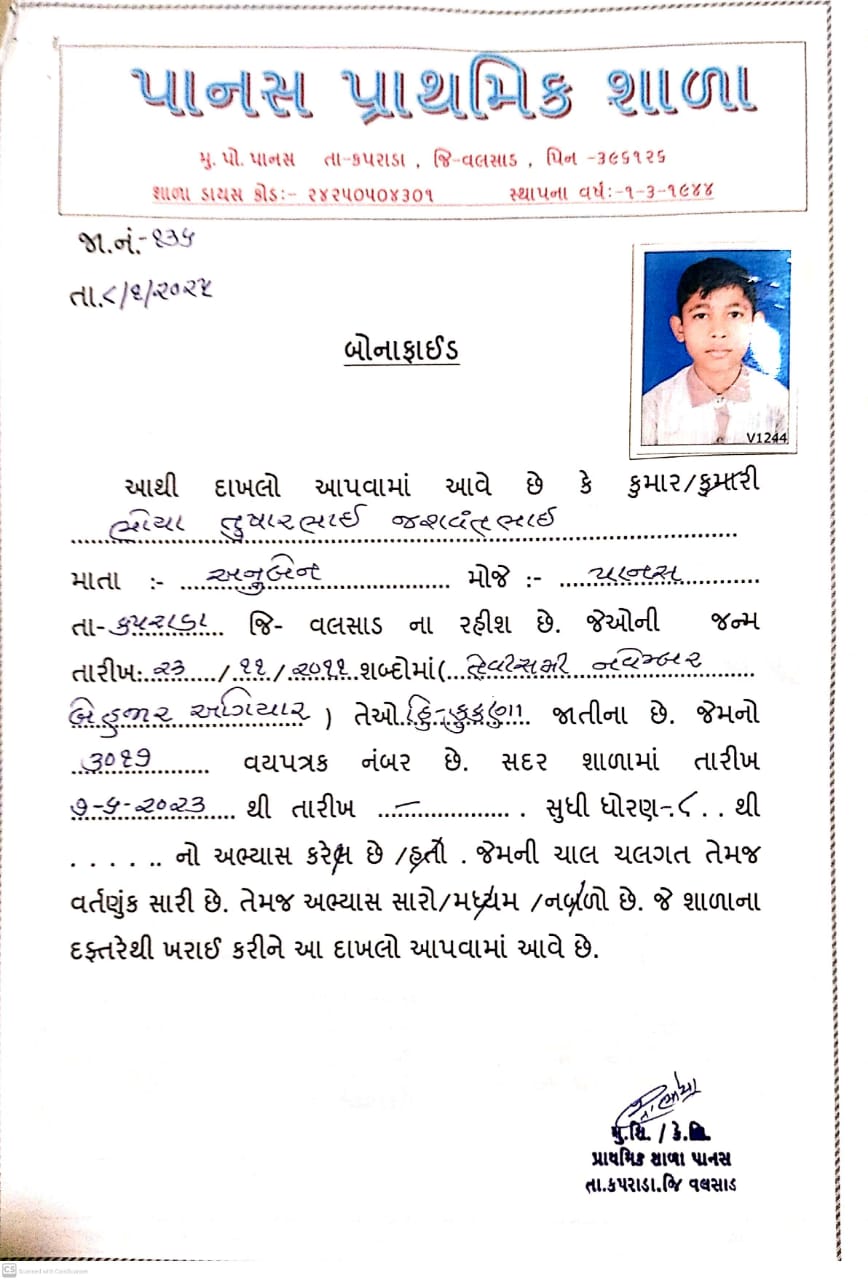 પાનસ પ્રાથમિક શાળા
મુ. પો. પાનસ તા-કપરાડા , જિ-વલસાડ , પિન -૩૯૬૧૨૬
શાળા ડાયસ કોડઃ- ૨૪૨૫૦૫૦૪૩૦૧ સ્થાપના વર્ષઃ-૧-૩-૧૯૪૪
જા.નં.-૧૩૫
તા.૮/૧/૨૦૨૫
બોનાફાઈડ
V1244
આથી દાખલો આપવામાં આવે છે કે કુમાર/કુમારી
ભોયા તુષારભાઈ જશવંતભાઈ
માતા :- અનુબેન મોજે :- પાનસ
તા-કપરાડા જિ- વલસાડ ના રહીશ છે. જેઓની જન્મ
તારીખઃ ૨૩ / ૧૧ / ૨૦૧૧ શબ્દોમાં( તેવીસમી નવેમ્બર
બેહજાર અગિયાર ) તેઓ હિ-કુકણા જાતીના છે. જેમનો
૩૦૧૭ વયપત્રક નંબર છે. સદર શાળામાં તારીખ
૭-૬-૨૦૨૩ થી તારીખ — . સુધી ધોરણ-૮ . . થી
. . . . . .. નો અભ્યાસ કરેલ છે /હતો . જેમની ચાલ ચલગત તેમજ
વર્તણુંક સારી છે. તેમજ અભ્યાસ સારો/મધ્યમ /નબળો છે. જે શાળાના
દફતરેથી ખરાઈ કરીને આ દાખલો આપવામાં આવે છે.
મુ.શિ. / કે.શિ.
પ્રાથમિક શાળા પાનસ
તા.કપરાડા.જિ વલસાડ
CS Scanned with CamScanner